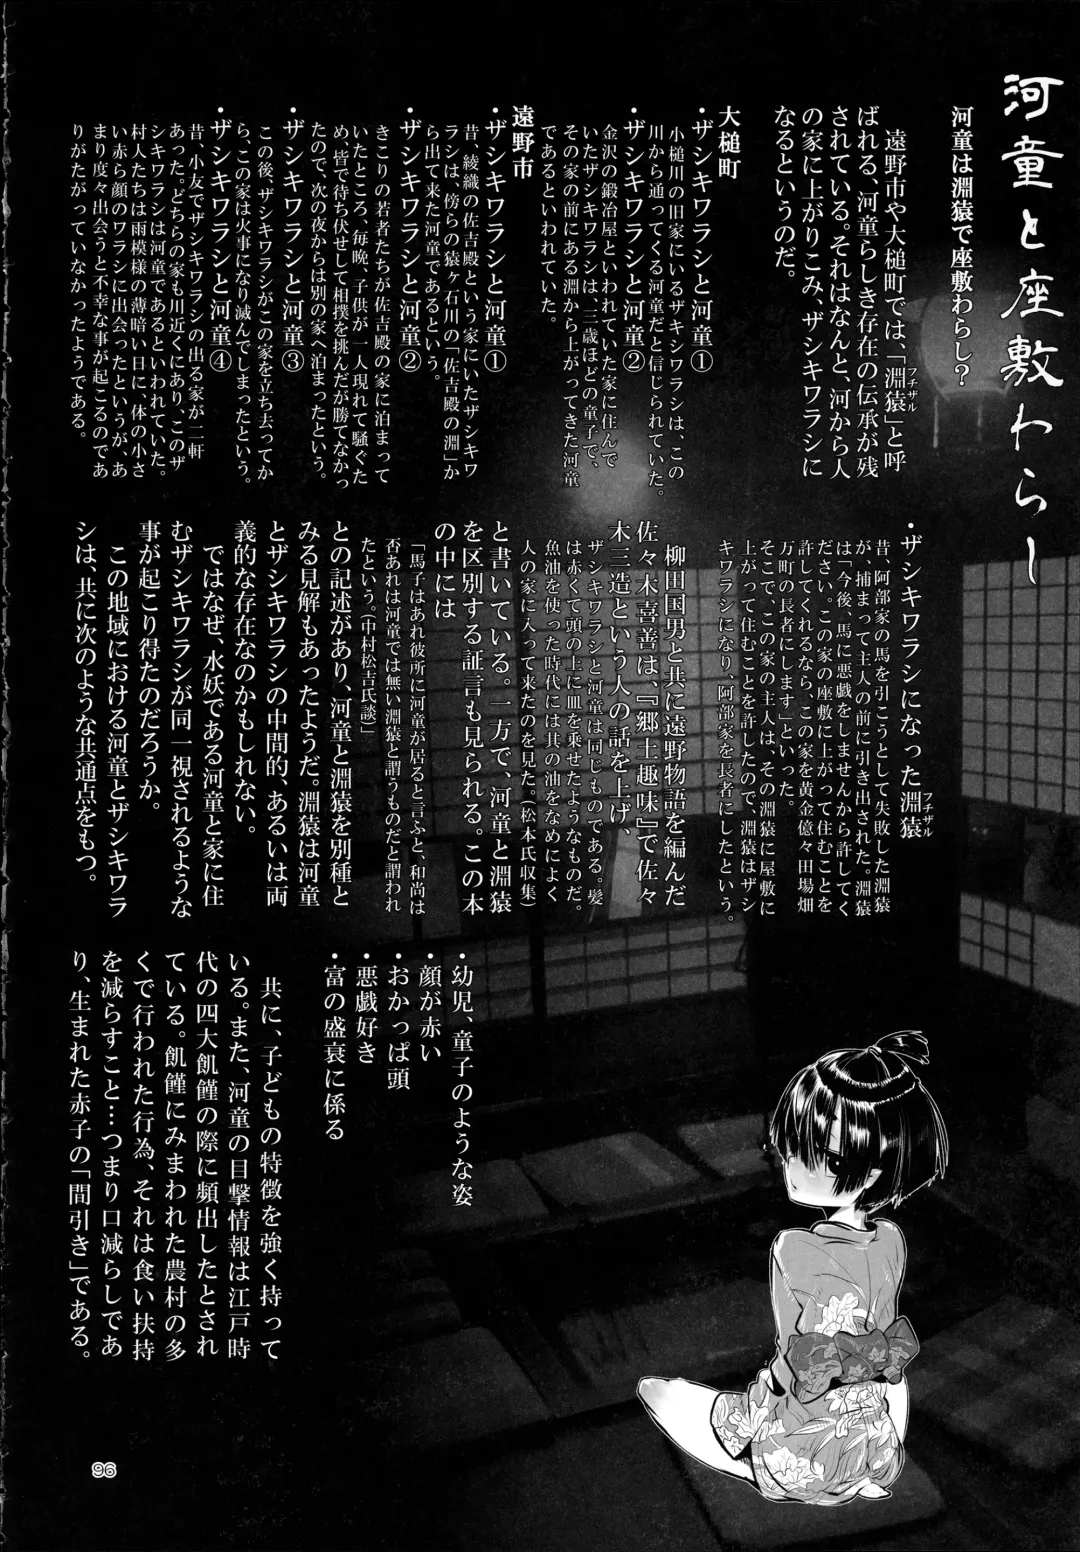 河童と座敷わらし
河童は淵猿で座敷わらし?
遠野市や大槌町では、「淵猿」と呼
フチザル
ばれる、河童らしき存在の伝承が残
されている。それはなんと、河から人
の家に上がりこみ、ザシキワラシに
なるというのだ。
大槌町
・ザシキワラシと河童①
小槌川の旧家にいるザキシワラシは、この
川から通ってくる河童だと信じられていた。
・ザシキワラシと河童②
金沢の鍛冶屋といわれていた家に住んで
いたザシキワラシは、三歳ほどの童子で、
その家の前にある淵から上がってきた河童
であるといわれていた。
遠野市
・ザシキワラシと河童①
昔、綾織の佐吉殿という家にいたザシキワ
ラシは、傍らの猿ヶ石川の「佐吉殿の淵」か
ら出て来た河童であるという。
・ザシキワラシと河童②
きこりの若者たちが佐吉殿の家に泊まって
いたところ、毎晩、子供が一人現れて騒ぐた
め、皆で待ち伏せして相撲を挑んだが勝てなかっ
たので、次の夜からは別の家へ泊まったという。
・ザシキワラシと河童③
この後、ザシキワラシがこの家を立ち去ってか
ら、この家は火事になり滅んでしまったという。
・ザシキワラシと河童④
昔、小友でザシキワラシの出る家が二軒
あった。どちらの家も川近くにあり、このザ
シキワラシは河童であるといわれていた。
村人たちは雨模様の薄暗い日に、体の小さ
い赤ら顔のワラシに出会ったというが、あ
まり度々出会うと不幸な事が起こるのであ
りがたがっていなかったようである。
・ザシキワラシになった淵猿
フチザル
昔、阿部家の馬を引こうとして失敗した淵猿
が、捕まって主人の前に引き出された。淵猿
は「今後、馬に悪戯をしませんから許してく
ださい。この家の座敷に上がって住むことを
許してくれるなら、この家を黄金億々田場畑
万町の長者にします」といった。
そこで、この家の主人は、その淵猿に屋敷に
上がって住むことを許したので、淵猿はザシ
キワラシになり、阿部家を長者にしたという。
柳田国男と共に遠野物語を編んだ
佐々木喜善は、『郷土趣味』で佐々
木三造という人の話を上げ、
ザシキワラシと河童は同じものである。髪
は赤くて頭の上に皿を乗せたようなものだ。
魚油を使った時代には其の油をなめによく
人の家に入って来たのを見た。(松本氏収集)
と書いている。一方で、河童と淵猿
を区別する証言も見られる。この本
の中には
「馬子はあれ彼所に河童が居ると言ふと、和尚は
否あれは河童では無い淵猿と謂うものだと謂われ
たという。(中村松吉氏談)」
との記述があり、河童と淵猿を別種と
みる見解もあったようだ。淵猿は河童
とザシキワラシの中間的、あるいは両
義的な存在なのかもしれない。
ではなぜ、水妖である河童と家に住
むザシキワラシが同一視されるような
事が起こり得たのだろうか。
この地域における河童とザシキワラ
シは、共に次のような共通点をもつ。
・幼児、童子のような姿
・顔が赤い
・おかっぱ頭
・悪戯好き
・富の盛衰に係る
共に、子どもの特徴を強く持って
いる。また、河童の目撃情報は江戸時
代の四大飢饉の際に頻出したとされ
ている。飢饉にみまわれた農村の多
くで行われた行為、それは食い扶持
を減らすこと…つまり口減らしであ
り、生まれた赤子の「間引き」である。
96